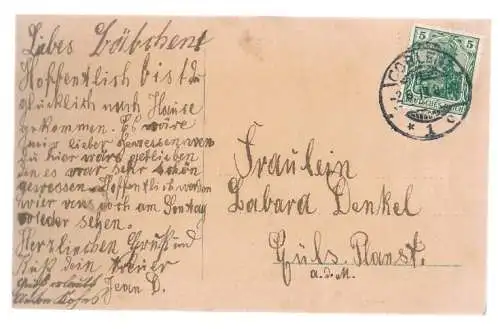 Libes Bäbchen!
Hoffentlich bist du
glücklich nach Hause
gekommen. Es wäre
mir lieber gewessen wen
du hier wärs geblieben
den es war sehr schön
gewessen. Hoffentlich werden
wier uns doch am Sontag
wieder sehen.
Herzlichen Gruß und
Kuß dein treuer
Jean D.
Gruß
Fräulein
Babard Denkel
Güls. Planst.
a.d.M.
5 5
COBLENZ
* 1 c